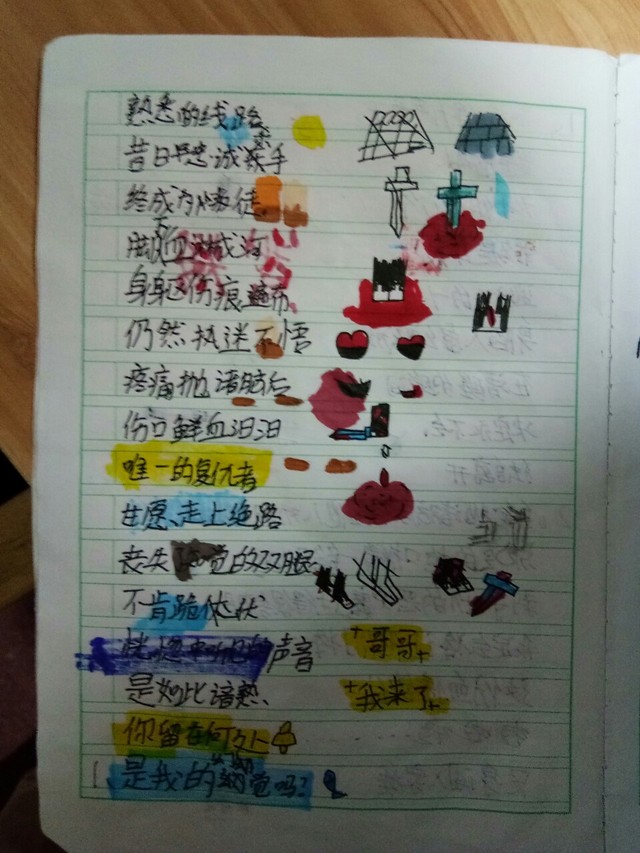 熟悉的线路
昔日虔诚教手
终成为叛徒
血淋成河
身躯伤痕遍布
仍然执迷不悟
疼痛抛诸脑后
伤口鲜血汩汩
唯一的复仇者
甘愿、走上绝路
丧失知觉的双腿
不肯跪伏
恍惚 声音 哥哥
是如此谙熟 我来了
你留在何处
是我的错觉吗?